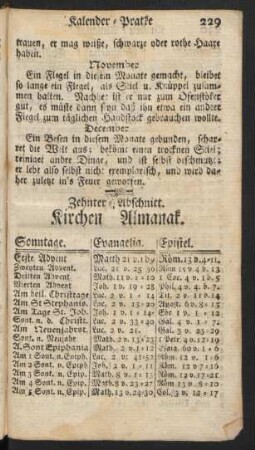 Kalender-Pratke 229
trauen, er mag weiße, schwarze oder rothe Haare
haben.
November
Ein Flegel in diesem Monate gemacht, bleibet
so lange ein Flegel, als Stiel u. Knüppel zusam-
men halten. Nachher ist er nur zum Ofenstöker
gut, es müste dann seyn daß ihn etwa ein andrer
Flegel zum täglichen Handstock gebrauchen wollte.
December
Ein Besen in diesem Monate gebunden, schar-
ret die Welt aus: bekömt einen trocknen Stiel;
reiniget andre Dinge, und ist selbst beschmutzt:
er lebt also selbst nicht exemplarisch, und wird da-
her zuletzt in's Feuer geworfen.
Zehnter Abschnitt.
Kirchen Almanak.
Sonntage. Evangelia. Epistel.
Erste Advent Matth 21 v. 1 09 Röm. 13 v. 4-11.
Zweyten Advent. Luc. 21 v. 25 36 Röm 15 v 4 b. 13
Dritten Advent Math. 11 v. 2 - 10 1 Cor. 4 v. b. 5
Vierten Advent Joh. 1 v. 19 - 28 Phil. 4 v. 4 - 7
Am heil. Christtage Luc. 2 v. 1 - 14
Am St Stephanis.
Am Tage St. Joh.
Sont. n. d. Christt. Luc. 2 v. 33 - 40
Am Neuenjahrst. Luc. 2 v. 21 Gal. 3 v. 23 - 29
Sont. n. Neujahr 1 Petr. 4 v. 12 - 19
H. Sont Epiphania Math. 2 v. 1 - 12
Am 1 Sont. n. Epiph. Luc. 2 v. 41 - 52 Röm 12 v. 1 - 6
Am 2 Sont. n. Epip. Joh. 2 v. 1 - 11
Am 3 Sont. n. Epip. Math. 8 v. 1 - 13
Am 4 Sont. n. Epip. Math. 8 v. 23 - 27 Röm 13 v. 8 - 10
Am 5 Sont. n. Epip. Math. 13 v. 24 - 30 Col. 3 v. 12 - 17